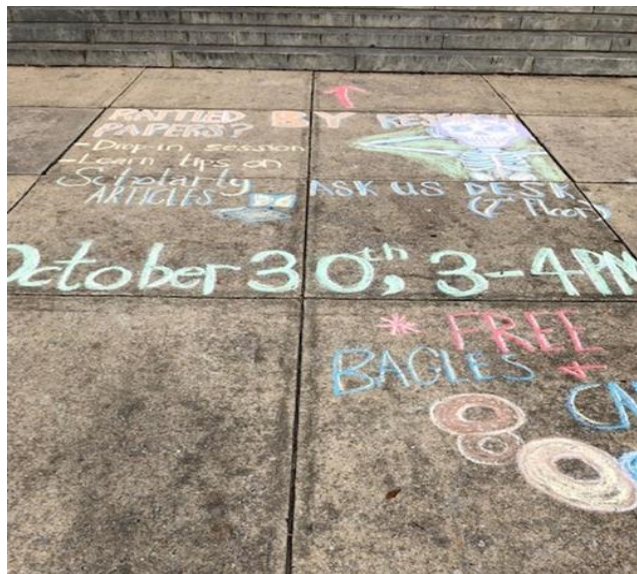 RATTLED BY RESEARCH
PAPERS?
- Drop-in session
- Learn tips on
Scholarly
ARTICLES
ASK US DESK
Floor)
October 30th, 3-4PM
* FREE
BAGLES +